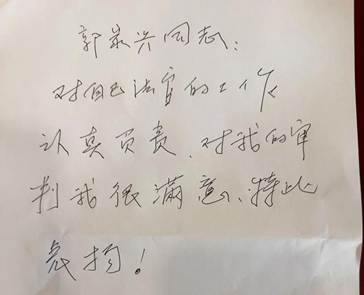 郭岚兴同志:
对自己法官的工作
认真负责、对我的审
判我很满意、特此
表扬!